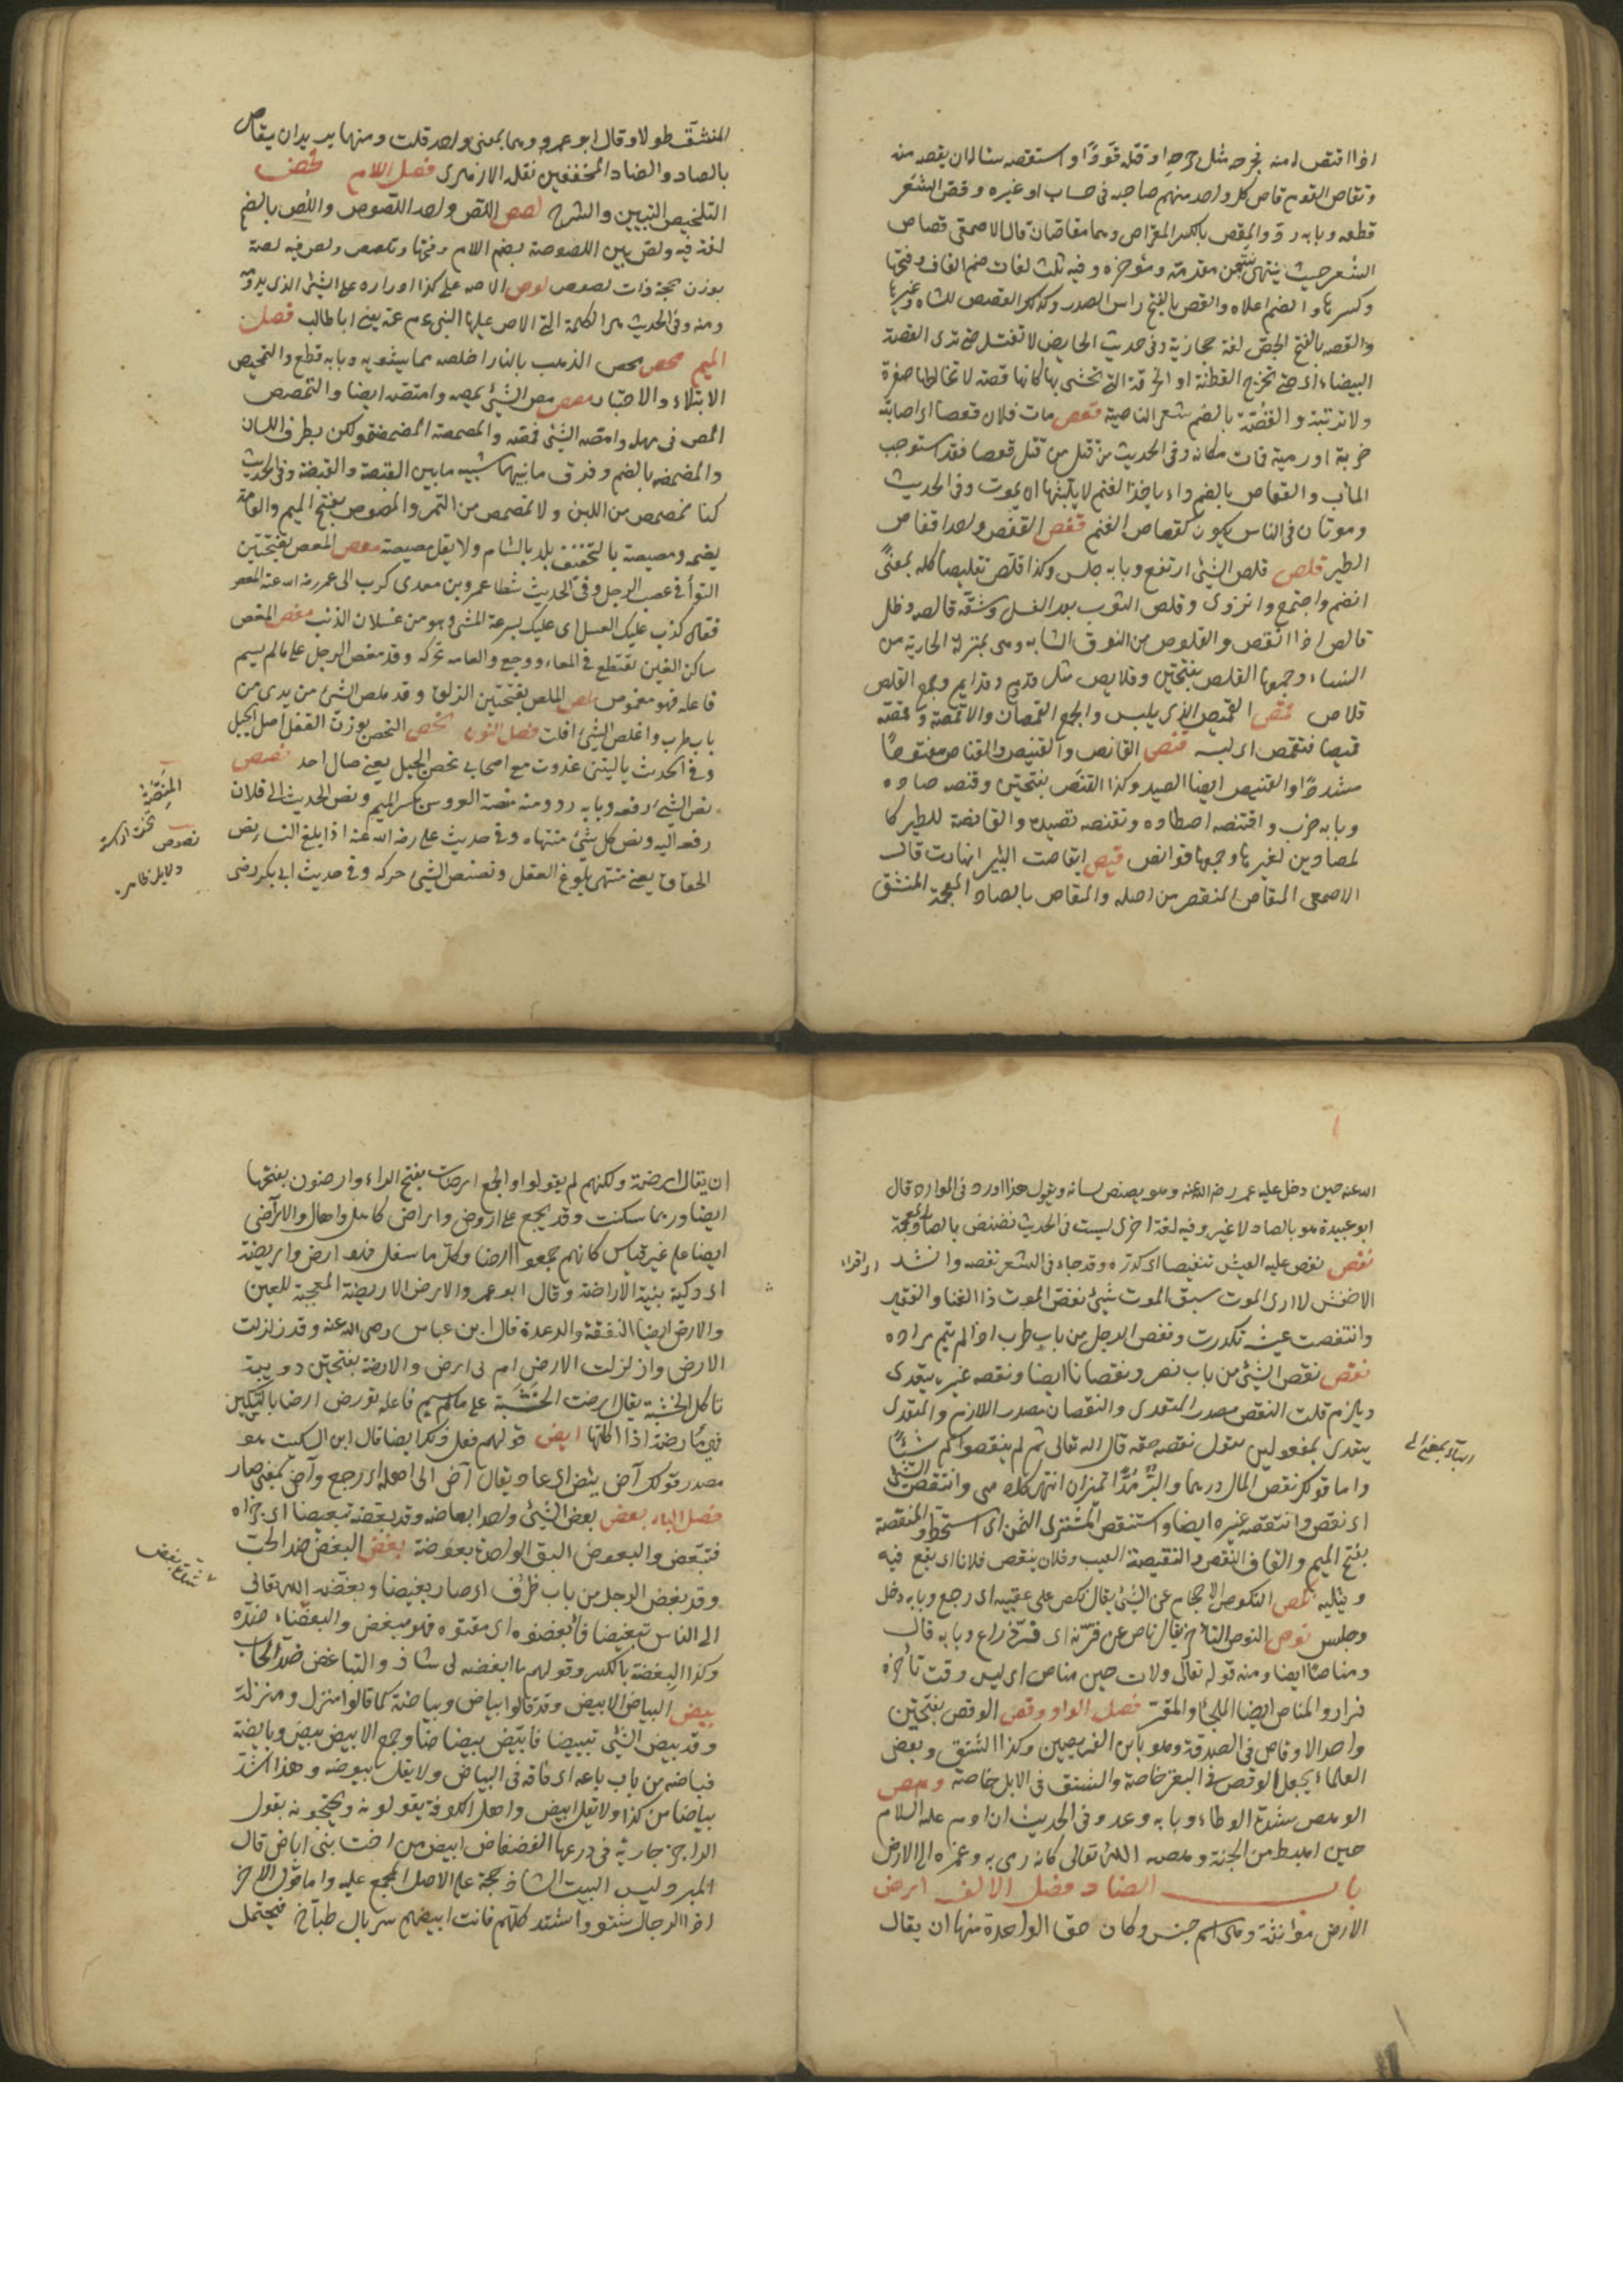 اذا اقتص له منه فجرحه مثل جرحه او قتله قودًا و استقصه سئاله ان يقصه منه
وتقاص القوم قاص كل واحد منهم صاحبه فى حساب او غيره وقص الشعر
قطعه وبابه رد والمقص بالكسر المقراص وهما مقاصان قال الاصمعى قصاص
الشعر حيث ينتهى من مقدمه ومؤخره وفيه ثلث لغات ضم القاف وفتحها
وكسرها والضم اعلاه والقص بالفتح راس الصدر وكذلك القصص للشاه وغيرها
والقصه بالفتح الجص لغة حجازية وفى حديث الحايض لا تغتسل حتى ترى القصة
البيضاء اى حتى تخرج القطنة او الخرقة التى تحتشى بها كانها قصة لا تخالطها صفرة
ولا تربة والقُصّة بالضم شعر الناصية قعص مات فلان قعصا اى اصابته
ضربة او رمية فمات مكانه وفى الحديث من قتل قعصا فقد استوجب
المآب والقعاص بالضم داء ياخذ الغنم لا يلبثها ان يموت وفى الحديث
وموتان فى الناس يكون كقعاص الغنم قفص القفص واحد اقفاص
الطير قلص قلص الشئ ارتفع وبابه جلس وكذا قلّص تقليصا كله بمعنًى
انضم واجتمع وانزوى وقلص الثوب بعد الغسل وشفة قالصه وظل
قالص اذا انقص والقلوص من النوق الشابه وهى بمنزلة الجارية من
النساء وجمعها القلص بفتحتين وقلايص مثل قدوم وقدايم وجمع القلص
قلاص قمص القميص الذى يلبس والجمع القمصان والاقمصة وقمصه
قميصا فتقمص اى لبسه قنص القانص والقنيص والقناص مفتوحًا
مشددًا والقنيص ايضا الصيد وكذا القنَص بفتحتين وقنصه صاده
وبابه ضرب واقتنصه اصطاده وتقنصه تصيده والقانصة للطير كا
لمصارين لغيرها وجمعها قوانص قيص انقاصت البئر انهارت قال
الاصمعى المنقاص المنقعر من اصله والمنقاض بالضاد المعجمة المنشق
المنشقّ طولا وقال ابو عمرو وهما بمعنى واحد قلت ومنهما يريد ان ينقاص
بالصاد والضاد المخففين نقله الازهرى فصل اللام لخص
التلخيص التبيين والشرح لصص اللص واحد اللصوص واللُص بالضم
لغة فيه ولص بين اللصوصة بضم اللام وفتحها وتلصص ولص فيه لصة
بوزن حجة ذات لصوص لوص الاصه على كذا اداره على الشئ الذى يروّه
ومنه وفى الحديث هى الكلمة التى الاص عليها النبى عم عمه يعنى ابا طالب فصل
الميم محص محص الذهب بالنار اخلصه مما يشوبه وبابه قطع والتمحيص
الابتلاء والاختبار مصص مص الشئ يمصه وامتصه ايضا والتمصص
المص فى مهله وامصّه الشئ فمصّه والمصمصة المضمضة ولكن بطرف اللسان
والمضمضه بالضم وفرق ما بينهما شبيه ما بين القبصة والقبضة وفى الحديث
كنا نمصمص من اللبن ولا نمصمص من التمر والمصوص بفتح الميم والعامة
يضمه ومصيصة بالتخفيف بلد بالشام ولا يقل مصيصة معص المعص بفتحتين
التوأ فى عصب الرجل وفى الحديث شكا عمرو بن معدى كرب الى عمر رضى الله عنه المعص
فقال كذب عليك العسل اى عليك بسرعة المشى وهو من عسلان الذئب مغص المغص
ساكن الغين تقطع فى المعاء ووجع والعامه تحركه وقد مغص الرجل على ما لم يسم
فاعله فهو ممغوص ملص الملص بفتحتين الزلق وقد ملص الشئ من يدى من
باب طرب واملص الشئ افلت فصل النون نحص النحص بوزن القفل اصل الجبل
وفى الحديث يا ليتنى غودرت مع اصحاب نحص الجبل يعنى صال احد نصص
نص الشئ رفعه وبابه رد ومنه منصة العروس بكسر الميم ونص الحديث الى فلان
رفعه اليه ونص كل شئ منتهاه وفى حديث على رضى الله عنه اذا بلغ النساء نص
الحقاق يعنى منتهى بلوغ العقل ونصنص الشئ حركه وفى حديث ابى بكر رضى
الله عنه حين دخل عليه عمر رضى الله عنه وهو ينصنص لسانه ويقول هذا اوردنى الموارد قال
ابو عبيدة هو بالصاد لا غير وفيه لغة اخرى ليست فى الحديث نضنض بالضاد المعجمة
نغص نغص عليه العيش تنغيصا اى كدّره وقد جاء فى الشعر نغصه وانشد
الاخفش لا ارى الموت يسبق الموت شئ نغص الموت ذا الغنا والفقير
وانتغصت عيشه تكدرت ونغص الرجل من باب طرب اذا لم يتم مراده
نقص نقص الشئ من باب نصر ونقصانا ايضا ونقصه غيره يتعدى
ويلزم قلت النقص مصدر المتعدى والنقصان مصدر اللازم والمتعدى
يتعدى بمفعولين تقول نقصه حقه قال الله تعالى ثم لم ينقصوكم شيئًا
واما قولك نقص المال درهما والبُرّ مُدًّا تمييزان انتهى كلامى وانتقص الشئ
اى نقص وانتقصه غيره ايضا واستنقص المشترى الثمن اى استحط والمنقصة
بفتح الميم والقاف النقص والنقيصة العيب وفلان ينتقص فلانا اى يقع فيه
ويثلبه نكص النكوص الاحجام عن الشئ يقال نكص على عقبيه اى رجع وبابه دخل
وجلس نوص النوص التأخر يقال ناص عن قرنه اى فرّ وراغ وبابه قال
ومناصًا ايضا ومنه قوله تعالى ولات حين مناص اى ليس وقت تأخر
فرار والمناص ايضا الملجأ والمفرّ فصل الواو وقص الوقص بفتحتين
واحد الاوقاص فى الصدقة وهو ما بين الفريضتين وكذا الشنق وبعض
العلماء يجعل الوقص فى البقر خاصة والشنق فى الابل خاصة وهص
الوهص شدة الوطاء وبابه وعد وفى الحديث ان ادم عليه السلام
حين اهبط من الجنة وهصه الله تعالى كانه رمى به وغمزه الى الارض
باب الضاد فصل الالف ارض
الارض مؤانثة وهى اسم جنس وكان حق الواحدة منها ان يقال
ان يقال ارضة ولكنهم لم يقولوا والجمع ارضات بفتح الراء وارضون بفتحها
ايضا وربما سكنت وقد يجمع على اروض واراض كاهل واهال والاراضى
ايضا على غير قياس كانهم جمعوا ارضا وكل ما سفل فهو ارض واريضة
اى زكية بنية الاراضة وقال ابو عمرو الارض الاريضة المعجبة للعين
والارض ايضا النفضة والرعدة قال ابن عباس رضى الله عنه وقد زلزلت
الارض وازلزلت الارض ام بى ارض والارضة بفتحتين دويبة
تاكل الخشبة يقال ارضت الخشبة على ما لم يسم فاعله تورض ارضا بالتسكين
فهى مأروضة اذا اكلتها ايض قولهم فعل ذلك ايضا قال ابن السكيت هو
مصدر قولك آض يئض اى عاد يقال آض الى اهله اى رجع وآض بمعنى صار
فصل الباء بعض بعض الشئ واحد ابعاضه وقد بعّضه تبعيضا اى جزاه
فتبعّض والبعوض البق الواحدة بعوضة بغض البغض ضد الحب
وقد بغض الرجل من باب ظرُف اى صار بغيضا وبغّضه الله تعالى
الى الناس تبغيضا فأبغضوه اى مقتوه فهو مبغض والبغضاء ضده
وكذا البغضة بالكسر وقولهم ما ابغضه لى شاذ والتباغض ضد التحاب
بيض البياض الابيض وقد قالوا بياض وبياضة كما قالوا منزل ومنزلة
وقد بيض الشئ تبييضا فابيّض ابيضاضا وجمع الابيض بيض وبايضه
فباضه من باب باع اى فاقه فى البياض ولا يقل يبوضه وهذا اشدّ
بياضا من كذا ولا تقل ابيض واهل الكوفة يقولونه ويحتجون بقول
الراجز جارية فى درعها الفضفاض ابيض من اخت بنى اباض قال
المبرد ليس البيت الشاذ بحجة على الاصل المجمع عليه واما قول الاخر
اذا الرجال شتوا واشتد كلهم فانت ابيضهم سربال طباخ فيحتمل